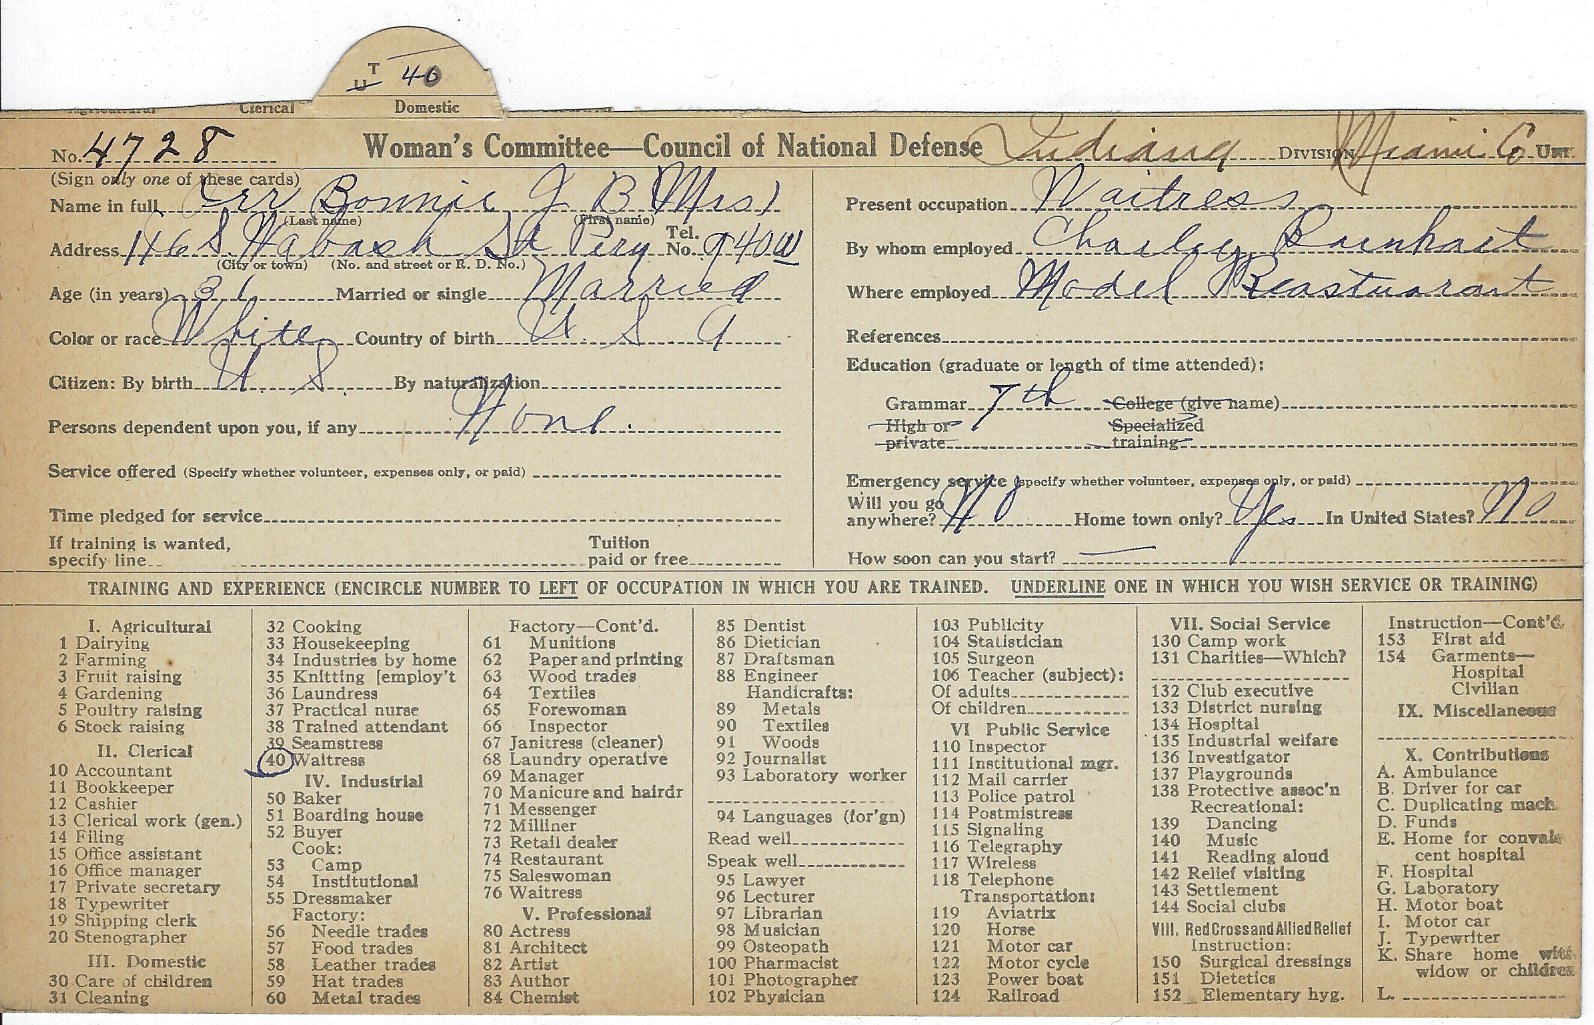 T
U 40
Clerical Domestic
No. 4728 Woman's Committee—Council of National Defense Indiana DIVISION Miami Co UNIT
(Sign only one of these cards)
Name in full Orr Bonnie J B Mrs)
(Last name) (First name)
Address 146 S. Wabash St Peru Tel. No. 940W
(City or town) (No. and street or R. D. No.)
Age (in years) 31 Married or single Married
Color or race White Country of birth U. S A
Citizen: By birth U. S By naturalization
Persons dependent upon you, if any None.
Service offered (Specify whether volunteer, expenses only, or paid)
Time pledged for service
If training is wanted, specify line Tuition paid or free
Present occupation Waitress
By whom employed Charley
Where employed Model Reastuarant
References
Education (graduate or length of time attended):
Grammar 7th College (give name)
High or private Specialized training
Emergency service (specify whether volunteer, expenses only, or paid)
Will you go anywhere? No Home town only? Yes In United States? No
How soon can you start? —
TRAINING AND EXPERIENCE (ENCIRCLE NUMBER TO LEFT OF OCCUPATION IN WHICH YOU ARE TRAINED. UNDERLINE ONE IN WHICH YOU WISH SERVICE OR TRAINING)
I. Agricultural
1 Dairying
2 Farming
3 Fruit raising
4 Gardening
5 Poultry raising
6 Stock raising
II. Clerical
10 Accountant
11 Bookkeeper
12 Cashier
13 Clerical work (gen.)
14 Filing
15 Office assistant
16 Office manager
17 Private secretary
18 Typewriter
19 Shipping clerk
20 Stenographer
III. Domestic
30 Care of children
31 Cleaning
32 Cooking
33 Housekeeping
34 Industries by home
35 Knitting [employ't
36 Laundress
37 Practical nurse
38 Trained attendant
39 Seamstress
40 Waitress
IV. Industrial
50 Baker
51 Boarding house
52 Buyer
Cook:
53 Camp
54 Institutional
55 Dressmaker
Factory:
56 Needle trades
57 Food trades
58 Leather trades
59 Hat trades
60 Metal trades
Factory—Cont'd.
61 Munitions
62 Paper and printing
63 Wood trades
64 Textiles
65 Forewoman
66 Inspector
67 Janitress (cleaner)
68 Laundry operative
69 Manager
70 Manicure and hairdr
71 Messenger
72 Milliner
73 Retail dealer
74 Restaurant
75 Saleswoman
76 Waitress
V. Professional
80 Actress
81 Architect
82 Artist
83 Author
84 Chemist
85 Dentist
86 Dietician
87 Draftsman
88 Engineer
Handicrafts:
89 Metals
90 Textiles
91 Woods
92 Journalist
93 Laboratory worker
94 Languages (for'gn)
Read well
Speak well
95 Lawyer
96 Lecturer
97 Librarian
98 Musician
99 Osteopath
100 Pharmacist
101 Photographer
102 Physician
103 Publicity
104 Statistician
105 Surgeon
106 Teacher (subject):
Of adults
Of children
VI Public Service
110 Inspector
111 Institutional mgr.
112 Mail carrier
113 Police patrol
114 Postmistress
115 Signaling
116 Telegraphy
117 Wireless
118 Telephone
Transportation:
119 Aviatrix
120 Horse
121 Motor car
122 Motor cycle
123 Power boat
124 Railroad
VII. Social Service
130 Camp work
131 Charities—Which?
132 Club executive
133 District nursing
134 Hospital
135 Industrial welfare
136 Investigator
137 Playgrounds
138 Protective assoc'n
Recreational:
139 Dancing
140 Music
141 Reading aloud
142 Relief visiting
143 Settlement
144 Social clubs
VIII. Red Cross and Allied Relief
Instruction:
150 Surgical dressings
151 Dietetics
152 Elementary hyg.
Instruction—Cont'd.
153 First aid
154 Garments—
Hospital
Civilian
IX. Miscellaneous
X. Contributions
A. Ambulance
B. Driver for car
C. Duplicating mach.
D. Funds
E. Home for convales
cent hospital
F. Hospital
G. Laboratory
H. Motor boat
I. Motor car
J. Typewriter
K. Share home with
widow or children
L.